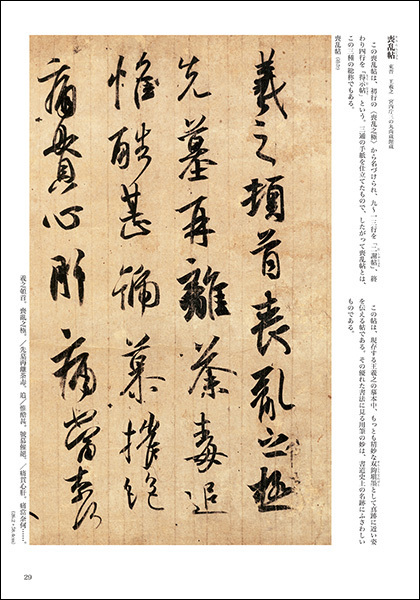 喪乱帖
東晋 王羲之 宮内庁三の丸尚蔵館蔵
この喪乱帖は、初行の〈喪乱之極〉から名づけられ、九～一三行を「二謝帖」、終
わり四行を「得示帖」という。三通の手紙を仕立てたもので、したがって喪乱帖とは、
この三種の総称でもある。
この帖は、現存する王羲之の摹本中、もっとも精妙な双鉤塡墨として真跡に近い姿
を伝える帖である。その優れた書法に見る用筆の妙は、書道史上の名跡にふさわしい
ものである。
喪乱帖
羲之頓首喪亂之極
先墓再離荼毒追
惟酷甚號慕摧絶
痛貫心肝痛當奈何
羲之頓首。喪亂之極。／先墓再離荼毒。追／惟酷甚。號慕摧絶。／痛貫心肝。痛當奈何……。
29